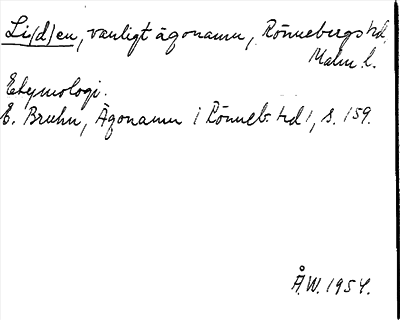 Li(d)en, vanligt ägonamn, Rönnebergs hd,
Malm. l.
Etymologi.
E. Bruhn, Ägonamn i Rönneb. hd 1, s. 159.
Å.W. 1954.